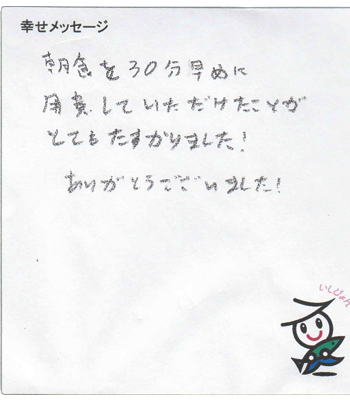 幸せメッセージ
朝食を30分早めに
用意していただけたことが
とてもたすかりました!
ありがとうございました!
いしぴょん